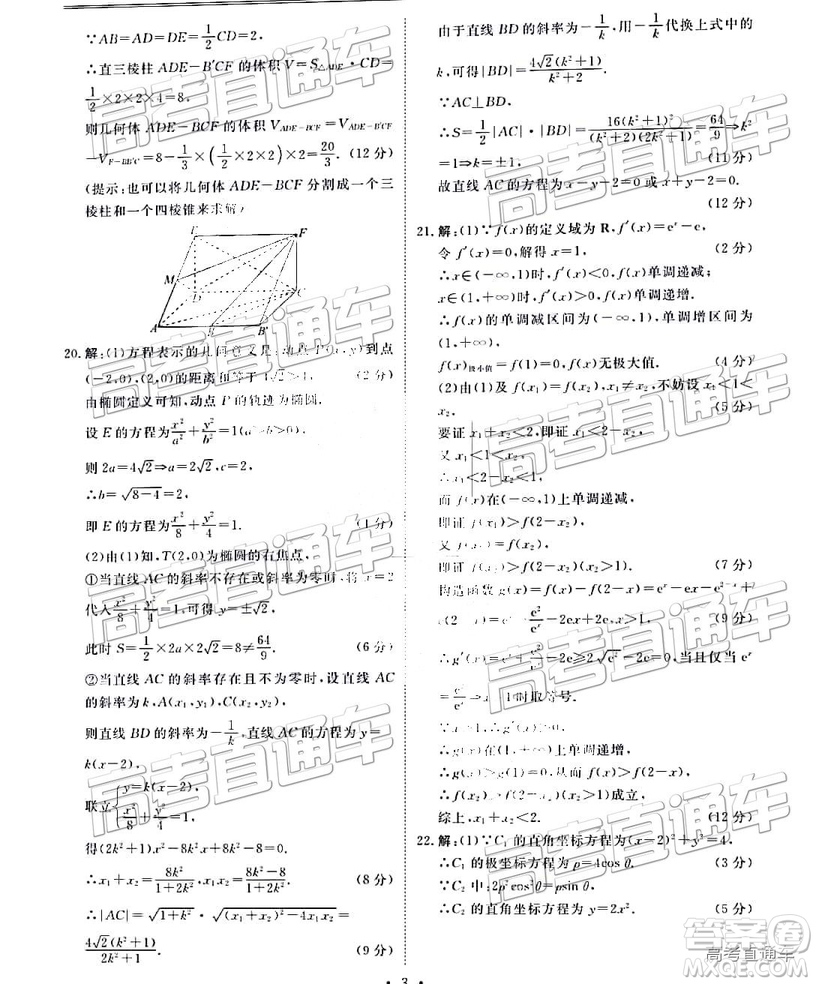 ∵AB=AD=DE=1/2CD=2,
∴直三棱柱 ADE-B′CF 的体积 V=S△ADE·CD=
1/2×2×2×4=8,
则几何体 ADE-BCF 的体积 V_{ADE-BCF}=V_{ADE-B′CF}
-V_{F-BB′C}=8-1/3×(1/2×2×2)×2=20/3. (12 分)
(提示:也可以将几何体 ADE-BCF 分割成一个三
棱柱和一个四棱锥来求解)
F
M
D
C
A
B
B′
20.解:(1)方程表示的几何意义是:动点 P(x,y)到点
(-2,0),(2,0)的距离和等于4√2, (2 分)
由椭圆定义可知,动点 P 的轨迹为椭圆.
设 E 的方程为x²/a²+y²/b²=1(a>b>0).
则 2a=4√2⇒a=2√2,c=2,
∴b=√(8-4)=2,
即 E 的方程为x²/8+y²/4=1. (4 分)
(2)由(1)知,T(2,0)为椭圆的右焦点,
①当直线 AC 的斜率不存在或斜率为零时,将 x=2
代入x²/8+y²/4=1,可得 y=±√2,
此时 S=1/2×2a×2√2=8≠64/9. (6 分)
②当直线 AC 的斜率存在且不为零时,设直线 AC
的斜率为 k,A(x₁,y₁),C(x₂,y₂),
则直线 BD 的斜率为-1/k,直线 AC 的方程为 y=
k(x-2),
联立{y=k(x-2), x²/8+y²/4=1,
得(2k²+1)x²-8k²x+8k²-8=0,
∴x₁+x₂=8k²/(1+2k²),x₁x₂=(8k²-8)/(1+2k²), (8 分)
∴|AC|=√(1+k²)·√((x₁+x₂)²-4x₁x₂)=
4√2(k²+1)/(2k²+1). (9 分)
由于直线 BD 的斜率为-1/k,用-1/k代换上式中的
k,可得|BD|=4√2(k²+1)/(k²+2).
∵AC⊥BD,
∴S=1/2|AC|·|BD|=16(k²+1)²/((k²+2)(2k²+1))=64/9⇒k²=
1⇒k=±1, (11 分)
故直线 AC 的方程为 x-y-2=0 或 x+y-2=0.
(12 分)
21.解:(1)∵f(x)的定义域为 R,f′(x)=eˣ-e,
令 f′(x)=0,解得 x=1, (2 分)
∴x∈(-∞,1)时,f′(x)<0,f(x)单调递减;
x∈(1,+∞)时,f′(x)>0,f(x)单调递增.
∴f(x)的单调减区间为(-∞,1),单调增区间为
(1,+∞),
f(x)极小值=f(1)=0,无极大值. (4 分)
(2)由(1)及 f(x₁)=f(x₂),x₁≠x₂,不妨设 x₁<1<
x₂. (5 分)
要证 x₁+x₂<2,即证 x₁<2-x₂,
又 x₁<1<x₂,
∴
而 f(x)在(-∞,1)上单调递减,
即证 f(x₁)>f(2-x₂),
又
即证 f(x₂)>f(2-x₂). (7 分)
构造函数 g(x)=f(x)-f(2-x)=eˣ-
=eˣ-e²/eˣ-2ex+2e,x>1. (9 分)
∴g′(x)=eˣ+e²/eˣ-2e≥2√e²-2e=0,当且仅当 eˣ
=e²/eˣ⇒x=1时取等号.
∵x>1,∴g′(x)>0,
∴g(x)在(1,+∞)上单调递增,
∴g(x)>g(1)=0,从而 f(x)>f(2-x),
∴f(x₂)>f(2-x₂)成立,
综上,x₁+x₂<2. (12 分)
22.解:(1)∵C₁ 的直角坐标方程为(x-2)²+y²=4,
∴C₁ 的极坐标方程为 ρ=4cos θ. (3 分)
∵C₂ 中:2ρ²cos²θ=ρsin θ,
∴C₂ 的直角坐标方程为 y=2x². (5 分)
· 3 ·
高考直通车
高考直通车
高考直通车
高考直通车
高考直通车
高考直通车
高考直通车
高考直通车
答案圈
高考直通车
MXQE.COM